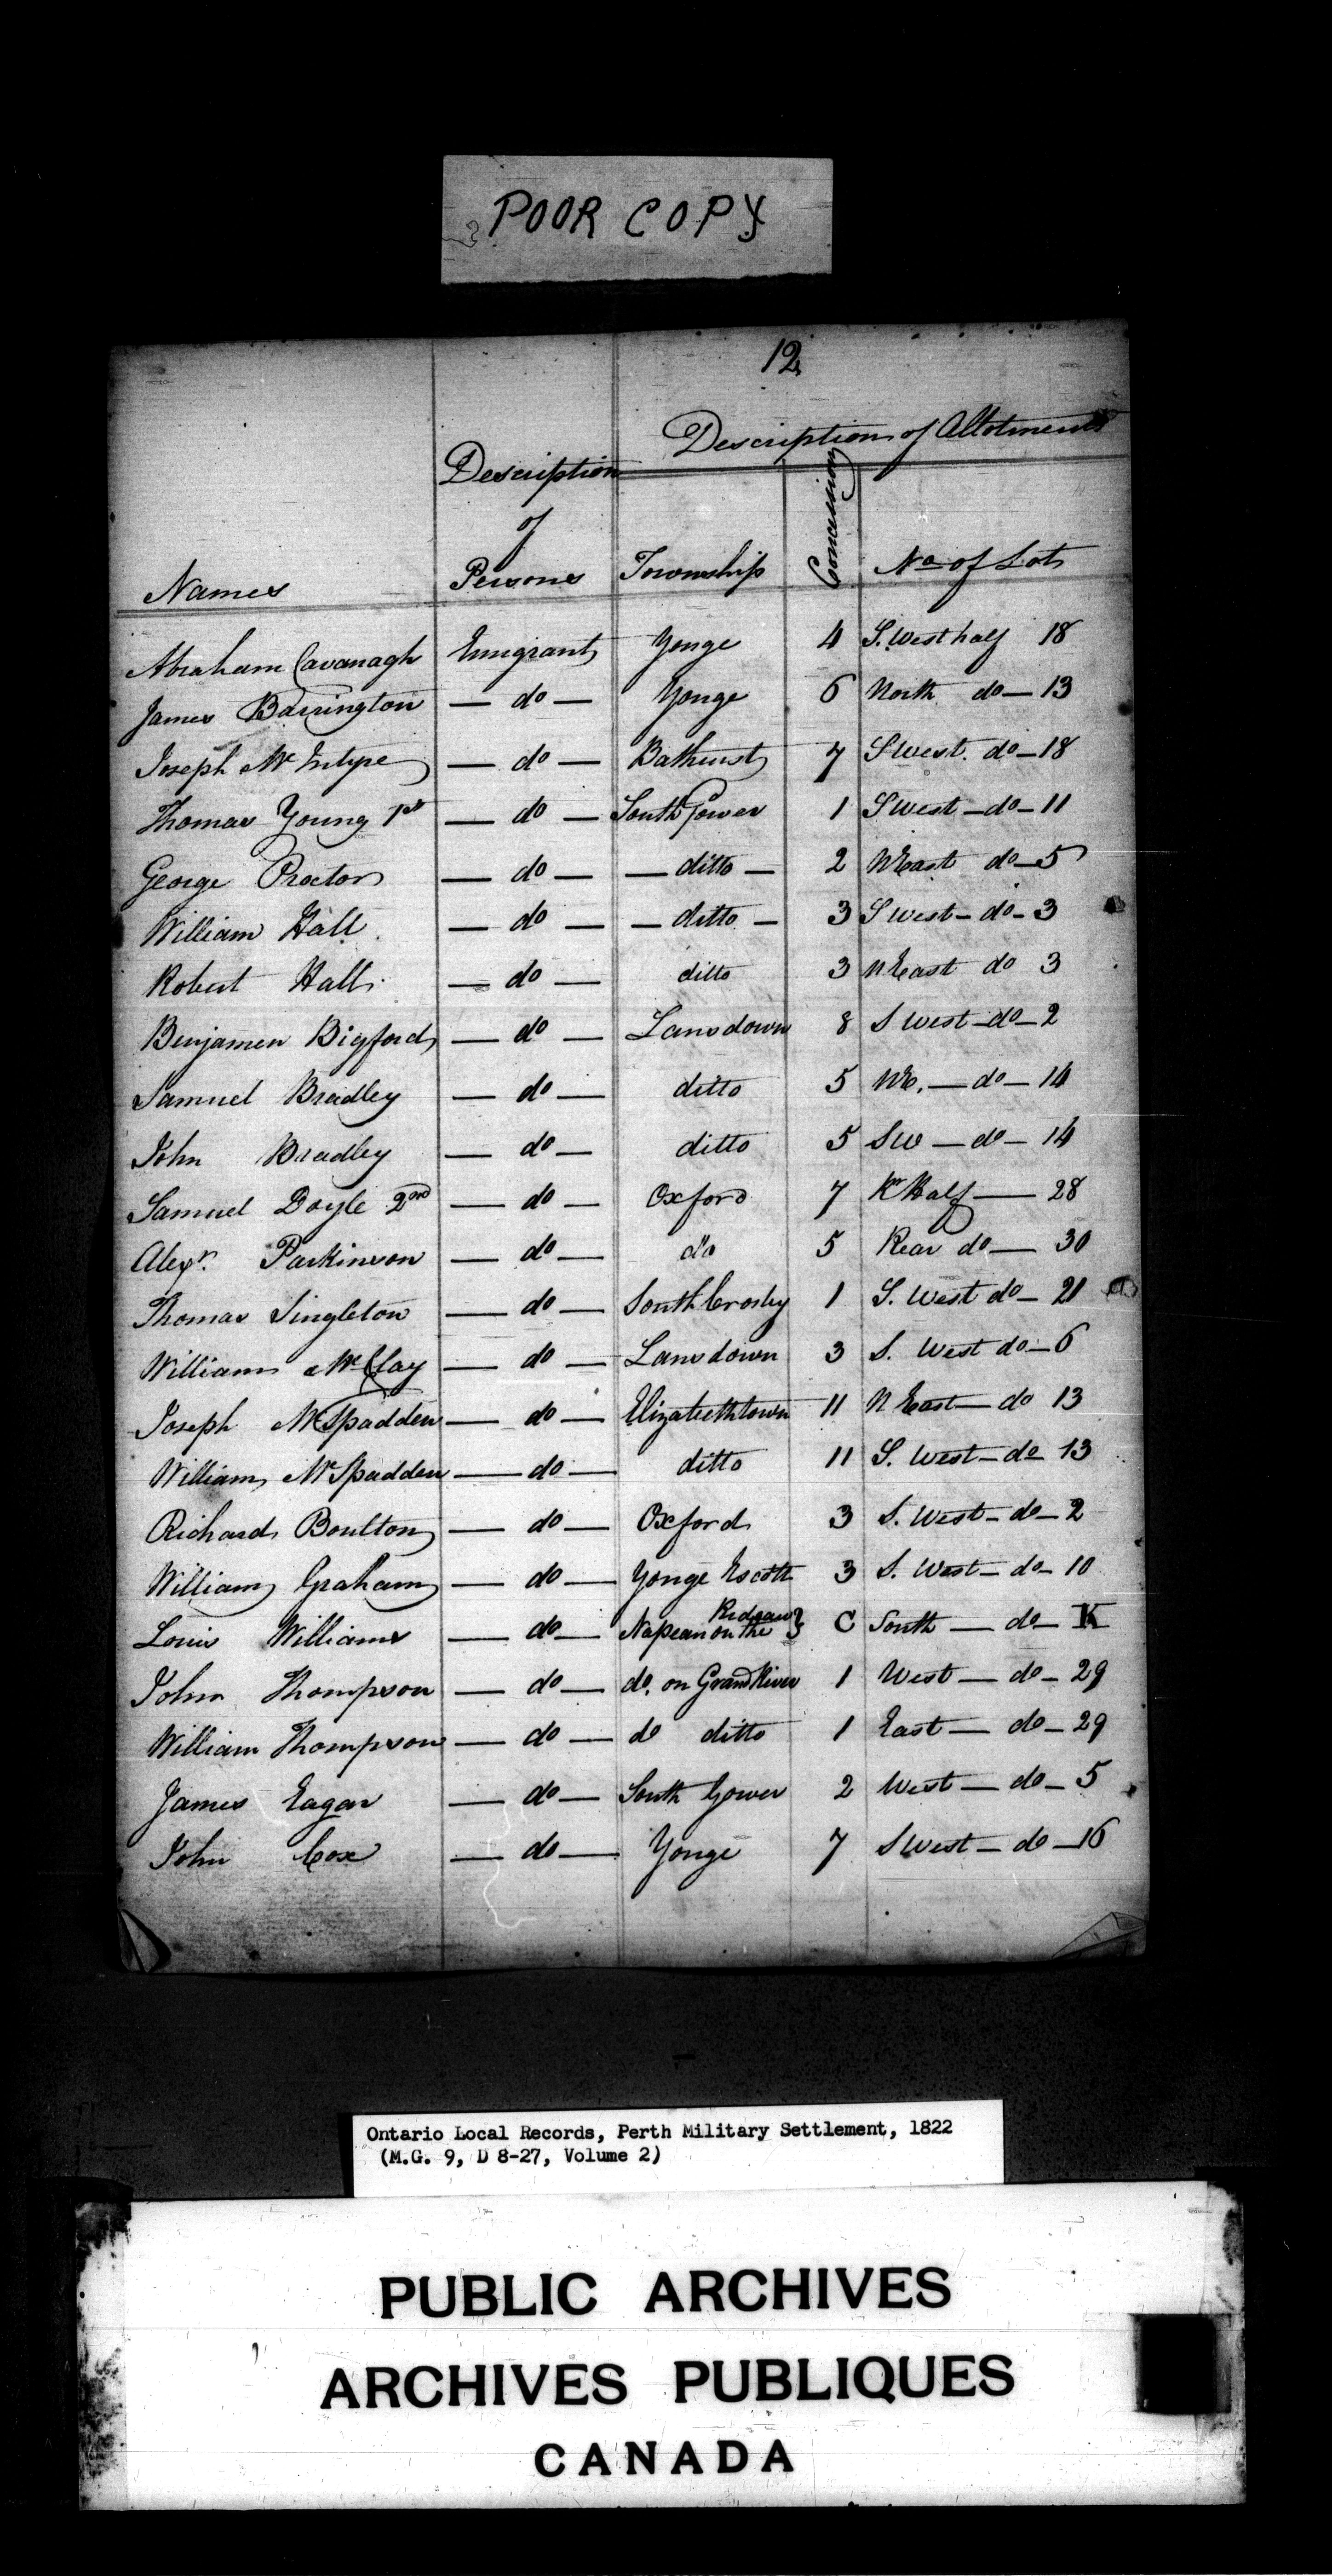 POOR COPY
12
Description of Allotments
Description of Persons
Names
Township
Concession
No of Lot
Abraham Cavanagh Emigrant Yonge 4 S. West half 18
James Barrington — do — Yonge 6 North do — 13
Joseph McIntyre — do — Bathurst 7 S West. do — 18
Thomas Young 1st — do — South Gower 1 S West — do — 11
George Proctor — do — — ditto — 2 N East do — 5
William Hall — do — — ditto — 3 S West — do — 3
Robert Hall — do — ditto 3 N East do 3
Benjamen Bigford — do — Lansdown 8 S West — do — 2
Samuel Bradley — do — ditto 5 NE. — do — 14
John Bradley — do — ditto 5 SW — do — 14
Samuel Doyle 2nd — do — Oxford 7 Rr Half — 28
Alexr. Parkinson — do — do 5 Rear do — 30
Thomas Singleton — do — South Crosby 1 S. West do — 21
William McClay — do — Lansdown 3 S. West do — 6
Joseph McSpadden — do — Elizabethtown 11 N East — do 13
William McSpadden — do — ditto 11 S. West — do — 13
Richard Boulton — do — Oxford 3 S. West — do — 2
William Graham — do — Yonge Escott 3 S. West — do — 10
Louis Williams — do — Napean on the Rideau } C South — do — K
John Thompson — do — do. on Grand River 1 West — do — 29
William Thompson — do — do ditto 1 East — do — 29
James Eagar — do — South Gower 2 West — do — 5
John Cox — do — Yonge 7 S West — do — 16
Ontario Local Records, Perth Military Settlement, 1822
(M.G. 9, D 8-27, Volume 2)
PUBLIC ARCHIVES
ARCHIVES PUBLIQUES
CANADA